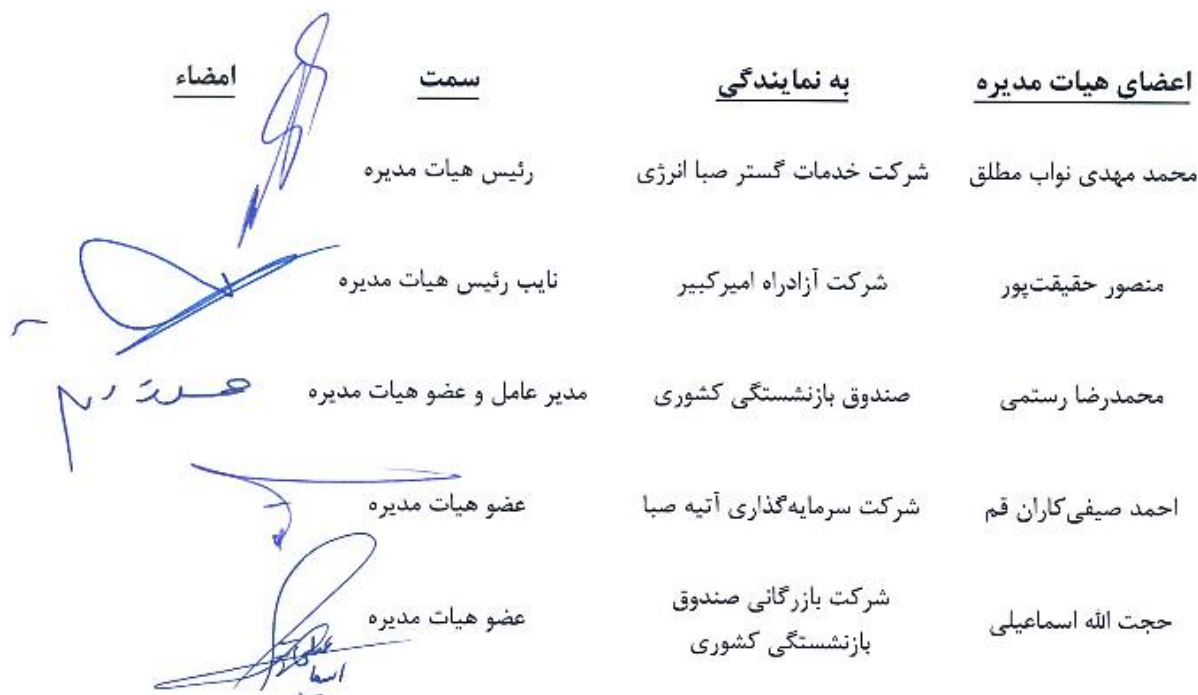 اعضای هیات مدیره به نمایندگی سمت امضاء
محمد مهدی نواب مطلق شرکت خدمات گستر صبا انرژی رئیس هیات مدیره
منصور حقیقت‌پور شرکت آزادراه امیرکبیر نایب رئیس هیات مدیره
محمدرضا رستمی صندوق بازنشستگی کشوری مدیر عامل و عضو هیات مدیره
احمد صیفی‌کاران قم شرکت سرمایه‌گذاری آتیه صبا عضو هیات مدیره
حجت الله اسماعیلی شرکت بازرگانی صندوق بازنشستگی کشوری عضو هیات مدیره